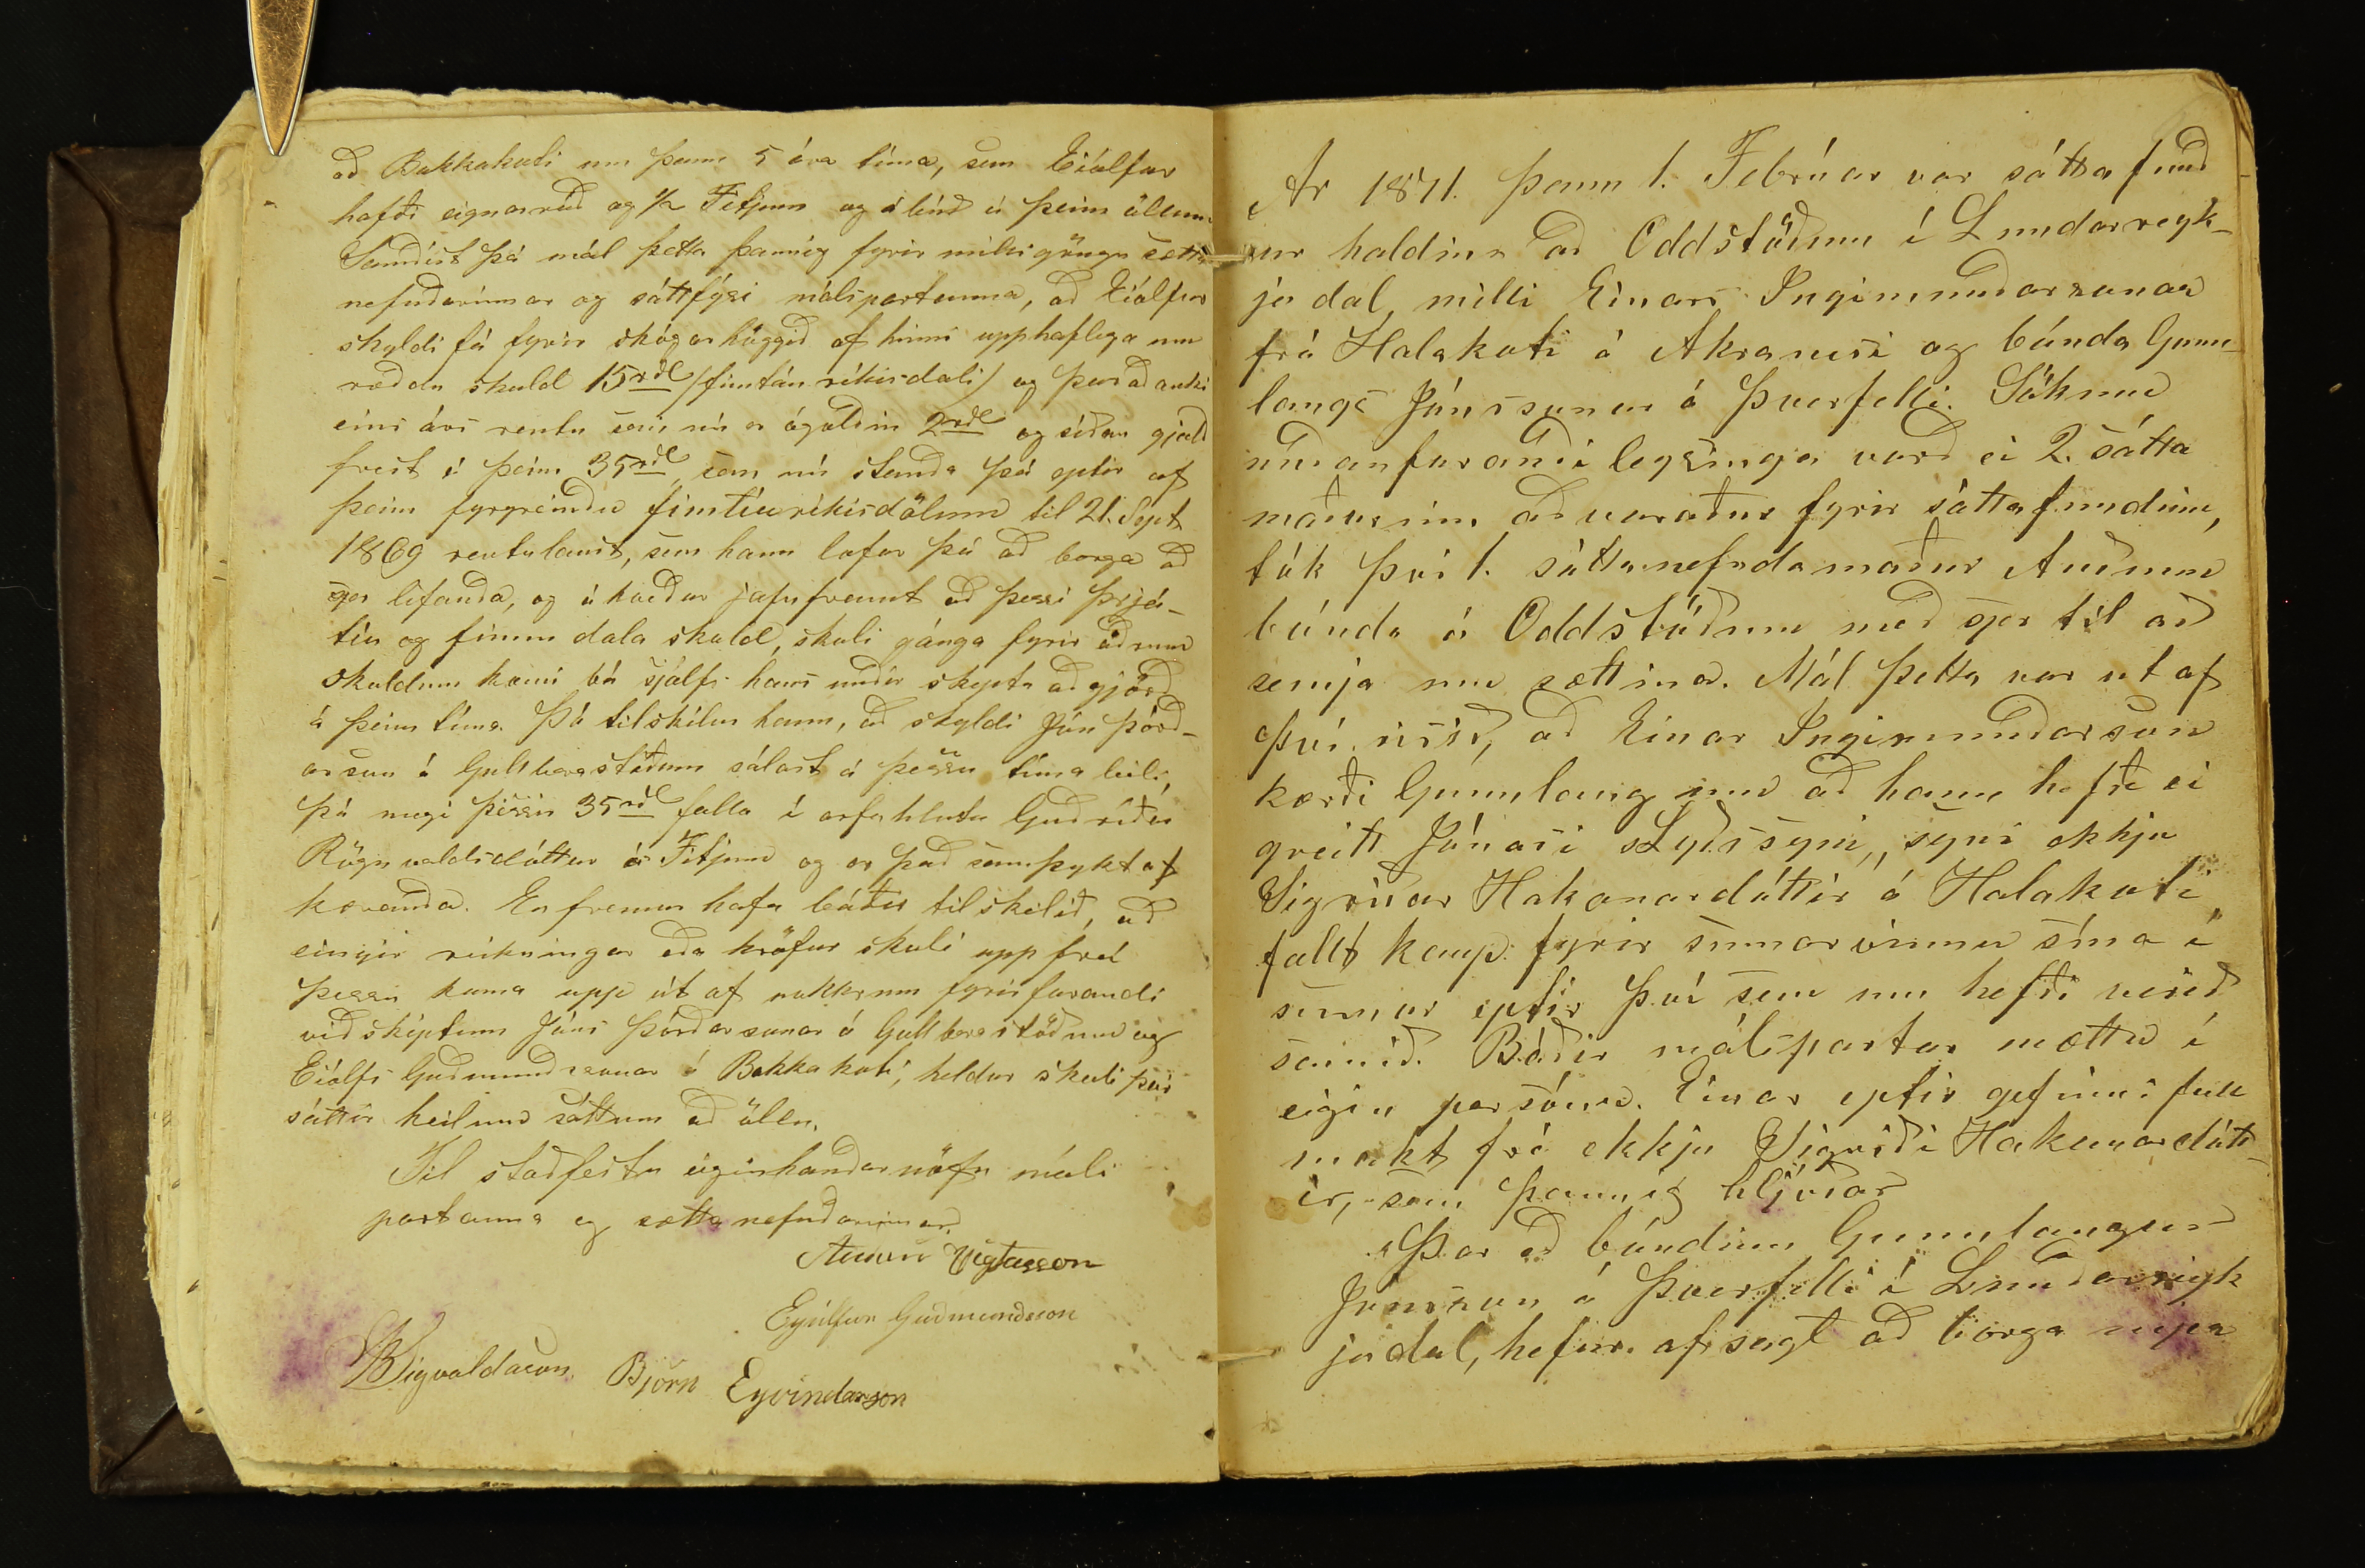 að Bakkakoti um þann 5 ára tíma, sem Eiólfur
hafði eignarráð og 1/2 Fitjum og álend á þeim ölum.
Samdist þá mál þetta þannig fyrir milligöngu sætta
nefndarinnar og sáttfýsi málspartanna, að Eiólfur
skyldi fá fyrir skógarhöggið af hinni upphaflega um
ræddu skuld 15rdl /fimtán ríkisdali/ og þar að auki
eins árs rentu sem nú er ógoldin 2rdl og síðan gjald
frest á þeim 35rdl sem nú standa þá eptir af
þeim fyrgreindu fimtíu ríkisdölum til 21. Sept
1869 rentulaust, sem hann lofar þá að borga að
sjer lifanda, og ákveður jafnframt að þessi þrjá-
tíu og fimm dala skuld, skuli gánga fyrir öðrum
skuldum komi bú sjálfs hans undir skipta aðgjörð
á þeim tíma. Þá tilskilur hann, að skyldi Jón Þórð-
arson á Gullberastöðum sálast á þessu tíma bili,
þá megi þessir 35rdl falla í arfahluta Guðríðar
Rögnvaldsdóttur á Fitjum og er það samþykt af
kæranda. En fremur hafa báðir tilskilið, að
eingir reikningar eða kröfur skuli upp frá
þessu koma upp út af nokkrum fyrirfarandi
viðskiptum Jóns Þórðarsonar á Gullberastöðum og
Eiólfs Guðmundssonar á Bakkakoti, heldur skuli þeir
sáttir heilum sáttum að öllu.
Til staðfestu eiginhandarnöfn máls
partanna og sættanefndarinnar.
Vigfusson
Eyólfur Guðmundsson
BSigvaldason. Björn Eyvindarson
Ár 1871. þann 1. Febrúar var sátta fund
ur haldinn að Oddstöðum í Lundarreyk-
jadal milli Einars Ingimundarsonar
frá Halakoti á Akranesi og bónda Gunn-
laugs Jónssonar á Þverfelli. Sökum
undanfarandi legsinga varð ei 2. sátta
maðurinn aðvaraður fyrir sáttafundinn,
tók því 1. sáttanefndamaður Auðunn
bónda á Oddstöðum með sjer til að
semja um sættina. Mál þetta var út af
því risið, að Einar Ingimundarson
kærði Gunnlaug um að hann hefði ei
greitt Jónasi Lydssyni, syni ekkju
Sigríðar Hakonardóttir á Halakoti
fullt kaup fyrir sumarvinnu sína í
sumar eptir því sem um hefði verið
samið. Báðir málspartar mættu í
eigin persónu. Einar eptir gefinni full
makt frá ekkju Sigríði Hakonardótt-
ir, sem þannig hljóðar
"Þar að bóndinn Gunnlaugur
Jónsson á Þverfelli í Lundarreyk
jadal, hefur afsagt að borga mjer